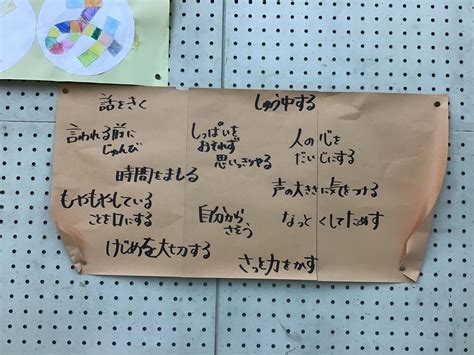 話をきく
しゅう中する
言われる前に
じゅんび
しっぱいを
おそれず
思いっきりやる
人の心を
だいじにする
時間をまもる
声の大きさに気をつける
もやもやしている
ことを口にする
自分から
さそう
なっとくしてためす
けじめを大切する
さっと力をかす